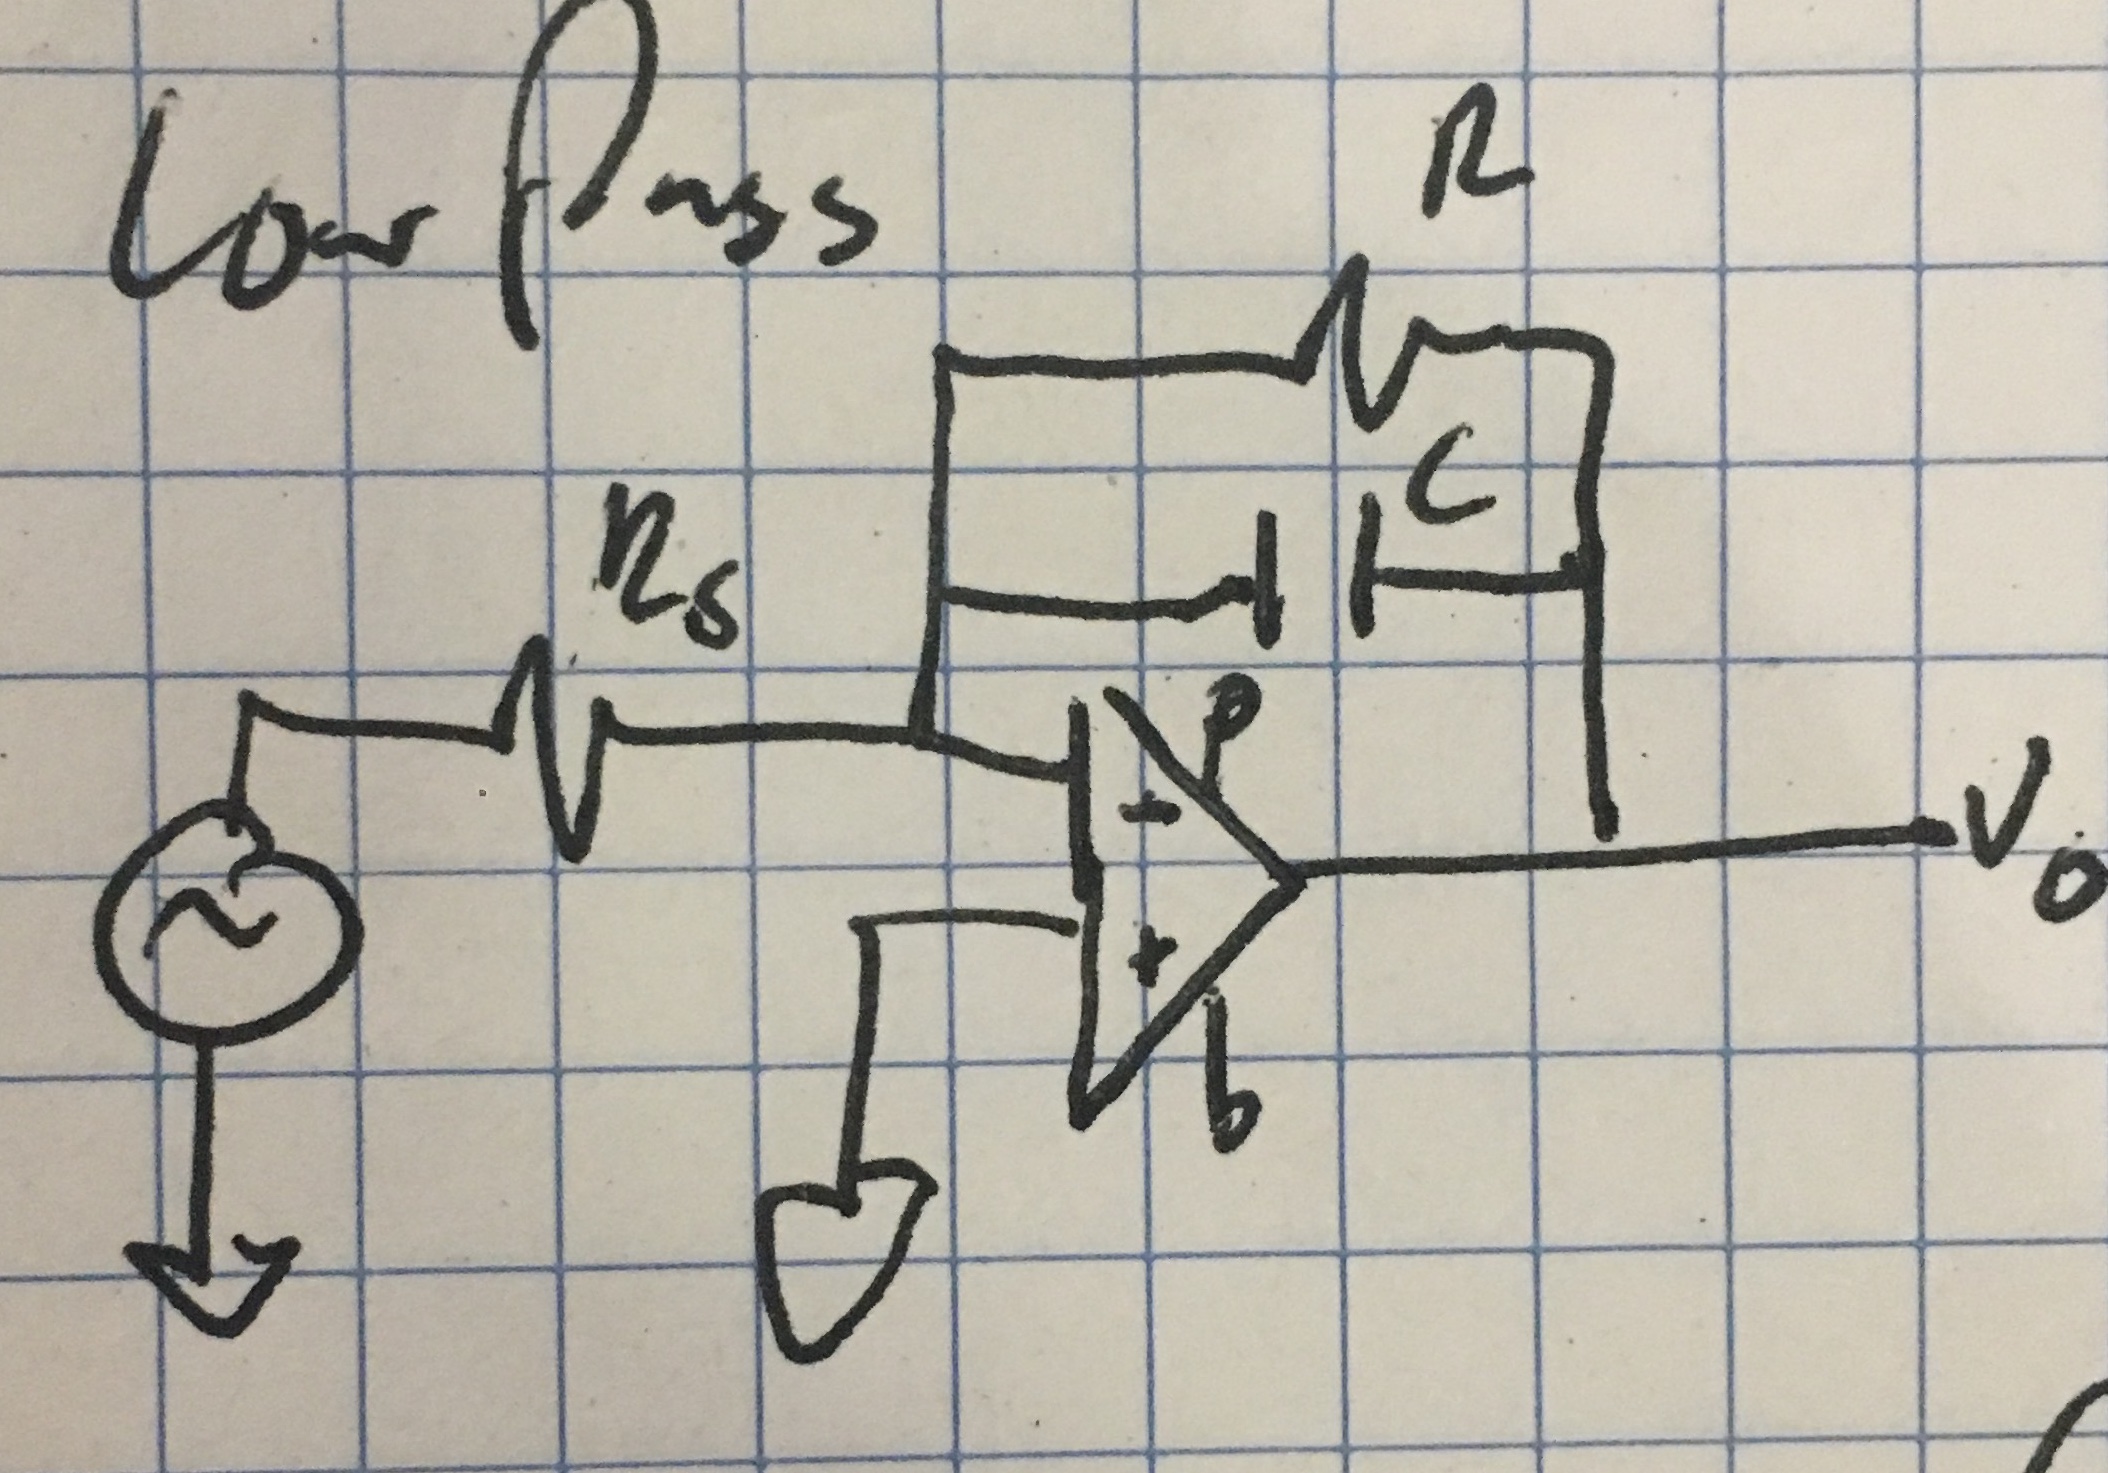 Low Pass
R
C
Rs
-
+
Vo